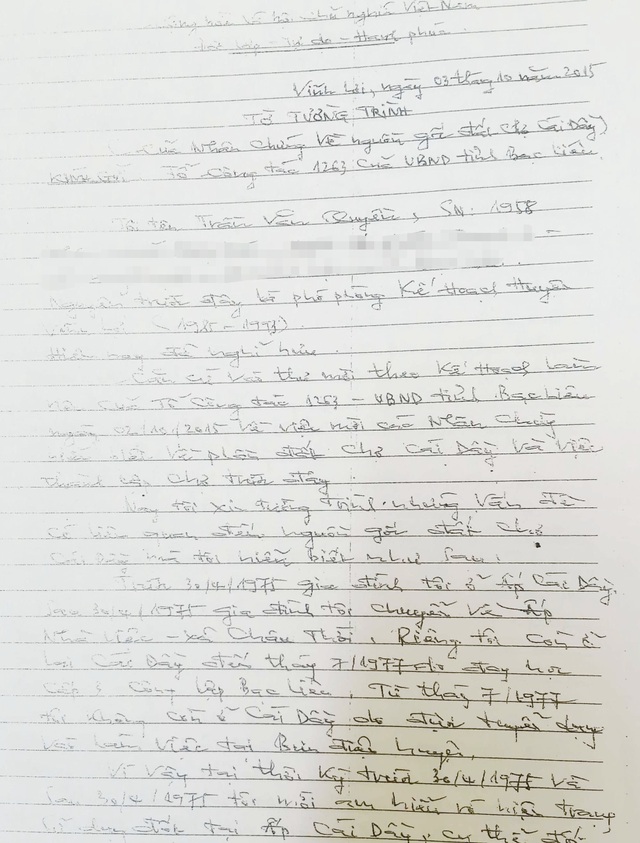 Cộng hòa Xã hội Chủ nghĩa Việt Nam
Độc lập - Tự do - Hạnh phúc
Vĩnh Lợi, ngày 03 tháng 10 năm 2015
TỜ TƯỜNG TRÌNH
Của Nhân chứng về nguồn gốc đất chợ Cái Dầy)
Kính gửi: Tổ Công tác 1263 của UBND tỉnh Bạc Liêu.
Tôi tên Trần Văn Quyền, SN: 1958
Nguyên trước đây là phó phòng Kế Hoạch Huyện
Vĩnh Lợi (1985 - 1993)
Hiện nay đã nghỉ hưu.
Căn cứ vào thư mời theo Kế Hoạch làm
việc của Tổ Công tác 1263 - UBND tỉnh Bạc Liêu
ngày 02/10/2015 về việc mời các Nhân Chứng
về phần đất Chợ Cái Dầy và việc
thành lập chợ trước đây
Nay tôi xin tường trình những vấn đề
có liên quan đến nguồn gốc đất chợ
Cái Dầy mà tôi hiểu biết như sau:
Trước 30/4/1975 gia đình tôi ở Ấp Cái Dầy,
sau 30/4/1975 gia đình tôi chuyển về Ấp
Nhà Việc - xã Châu Thới, Riêng tôi còn ở
lại Cái Dầy đến tháng 7/1977 do đang học
Cấp 3 Công lập Bạc Liêu, Từ tháng 7/1977
tôi không còn ở Cái Dầy do được tuyển dụng
vào làm việc tại Bưu điện huyện,
Vì vậy tại thời kỳ trước 30/4/1975 và
sau 30/4/1975 tôi mới am hiểu về hiện trạng
sử dụng đất tại Ấp Cái Dầy, cụ thể